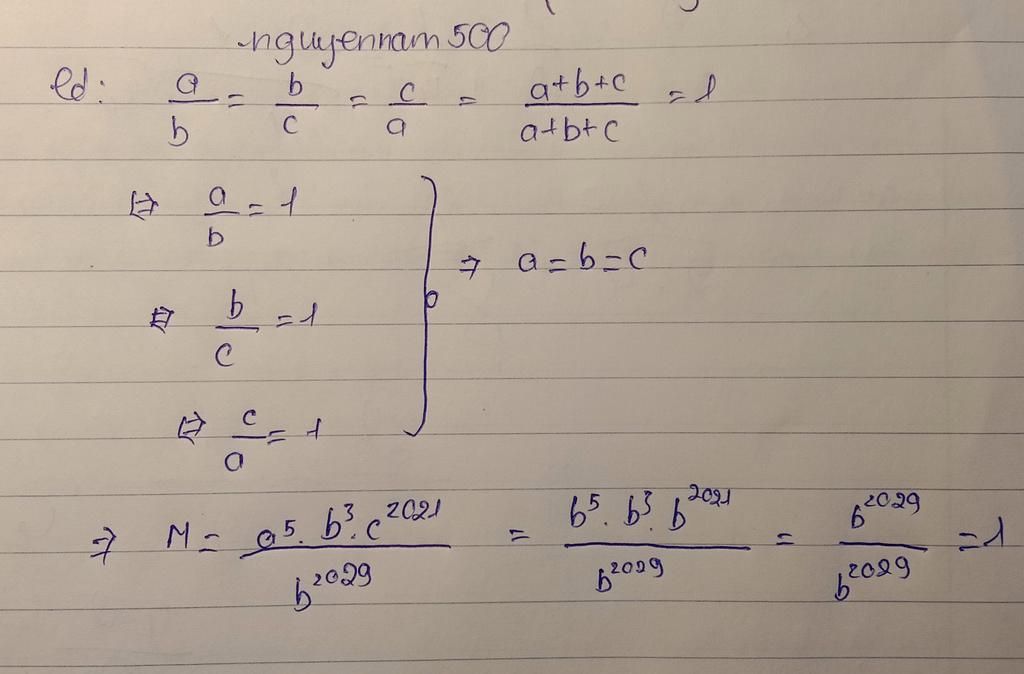 nguyennam500
Cd: a/b = b/c = c/a = (a+b+c)/(a+b+c) = 1
⇔ a/b = 1
⇔ b/c = 1
⇔ c/a = 1
} ⇒ a = b = c
⇒ M = (a^5 . b^3 . c^2021)/(b^2029) = (b^5 . b^3 . b^2021)/(b^2029) = (b^2029)/(b^2029) = 1